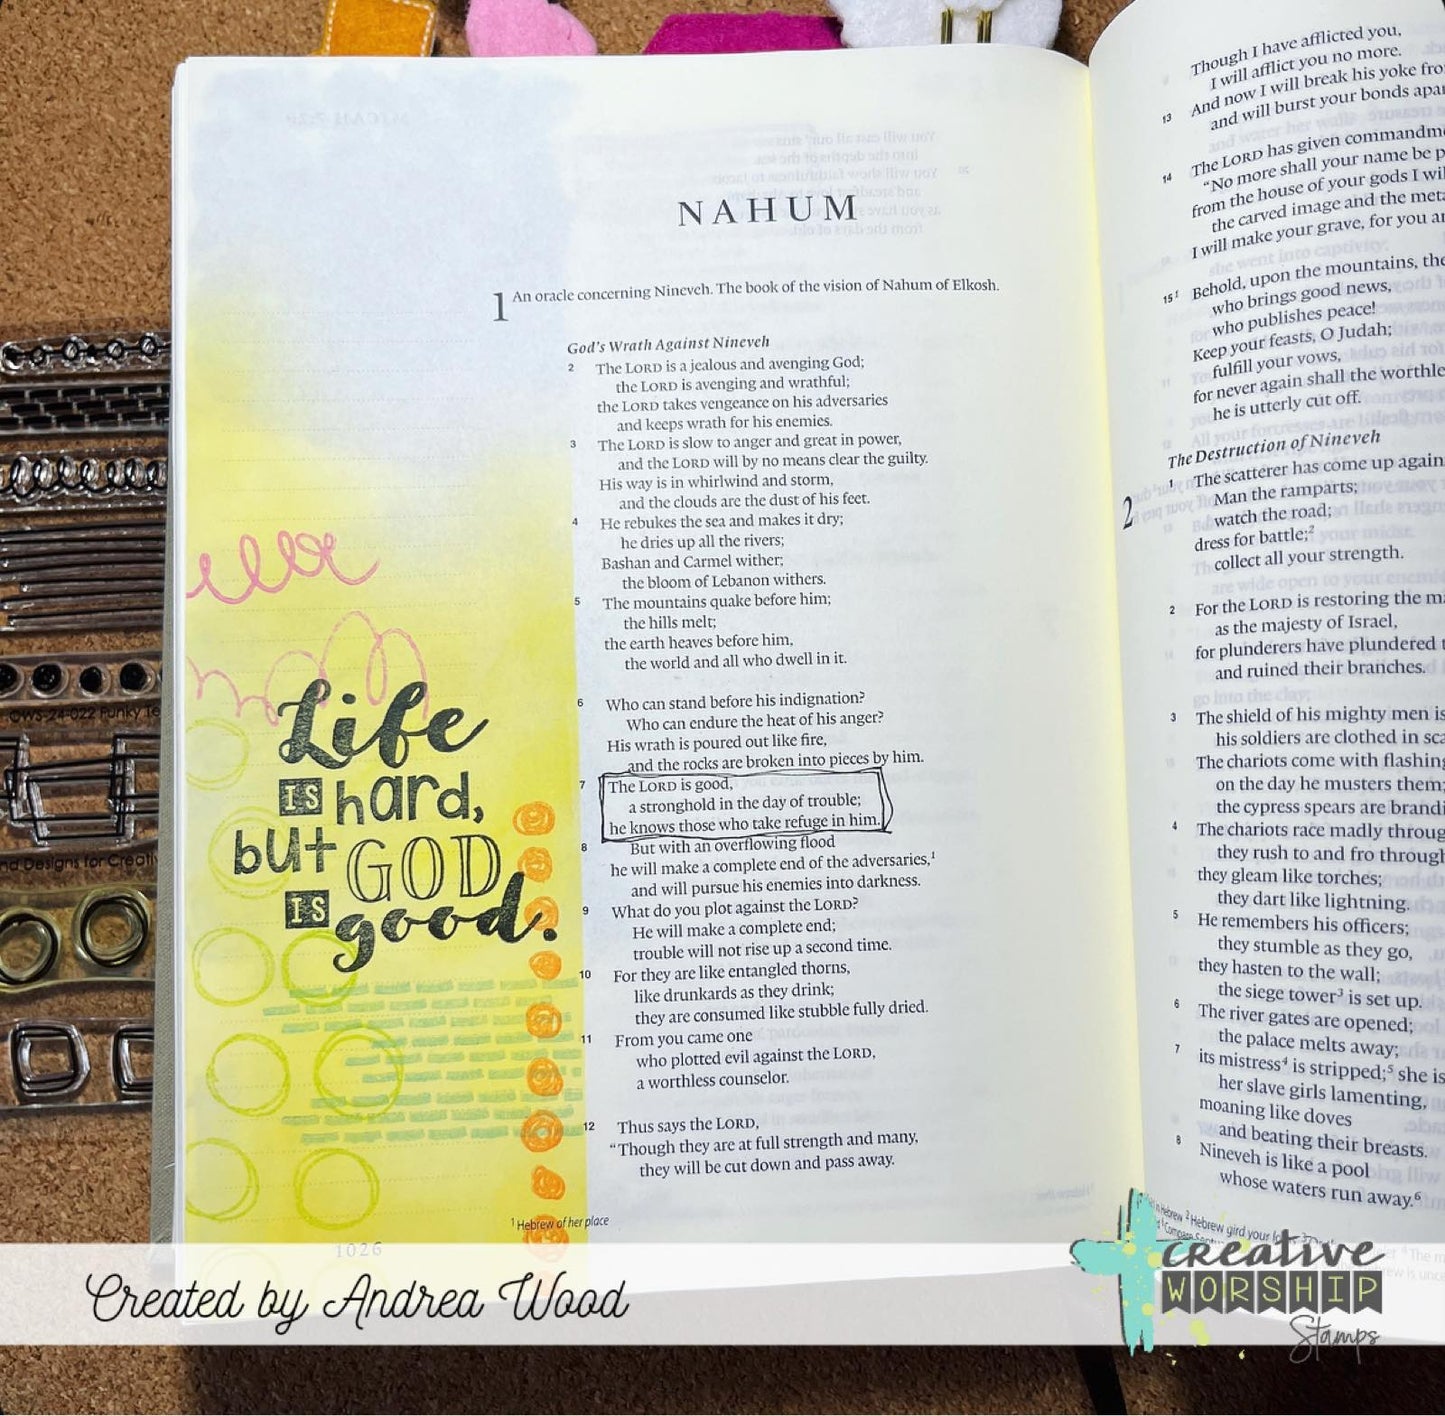 NAHUM
1 An oracle concerning Nineveh. The book of the vision of Nahum of Elkosh.
God's Wrath Against Nineveh
2 The LORD is a jealous and avenging God;
the LORD is avenging and wrathful;
the LORD takes vengeance on his adversaries
and keeps wrath for his enemies.
3 The LORD is slow to anger and great in power,
and the LORD will by no means clear the guilty.
His way is in whirlwind and storm,
and the clouds are the dust of his feet.
4 He rebukes the sea and makes it dry;
he dries up all the rivers;
Bashan and Carmel wither;
the bloom of Lebanon withers.
5 The mountains quake before him;
the hills melt;
the earth heaves before him,
the world and all who dwell in it.
6 Who can stand before his indignation?
Who can endure the heat of his anger?
His wrath is poured out like fire,
and the rocks are broken into pieces by him.
7 The LORD is good,
a stronghold in the day of trouble;
he knows those who take refuge in him.
8 But with an overflowing flood
he will make a complete end of the adversaries,1
and will pursue his enemies into darkness.
9 What do you plot against the LORD?
He will make a complete end;
trouble will not rise up a second time.
10 For they are like entangled thorns,
like drunkards as they drink;
they are consumed like stubble fully dried.
11 From you came one
who plotted evil against the LORD,
a worthless counselor.
12 Thus says the LORD,
"Though they are at full strength and many,
they will be cut down and pass away.
1 Hebrew of her place
1026
Life
IS hard,
but GOD
IS good.
Though I have afflicted you,
I will afflict you no more.
13 And now I will break his yoke
and will burst your bonds
14 The LORD has given
"No more shall your name be
from the house of your gods I
the carved image and the
I will make your grave, for you
15 1 Behold, upon the mountains, the
who brings good news,
who publishes peace!
Keep your feasts, O Judah;
fulfill your vows,
for never again shall the
he is utterly cut off.
The Destruction of Nineveh
2 1 The scatterer has come up
Man the ramparts;
watch the road;
dress for battle;2
collect all your strength.
2 For the LORD is restoring the
as the majesty of Israel,
for plunderers have plundered
and ruined their branches.
3 The shield of his mighty men is
his soldiers are clothed in
The chariots come with flashing
on the day he musters them;
the cypress spears are
4 The chariots race madly
they rush to and fro
they gleam like torches;
they dart like lightning.
5 He remembers his officers;
they stumble as they go,
they hasten to the wall;
the siege tower3 is set up.
6 The river gates are opened;
the palace melts away;
7 its mistress4 is stripped;5 she is
her slave girls lamenting,
moaning like doves
and beating their breasts.
8 Nineveh is like a pool
whose waters run away.6
2 Hebrew gird your
CWS-24-022 Funky
Designs for
Created by Andrea Wood
CREATIVE
WORSHIP
Stamps